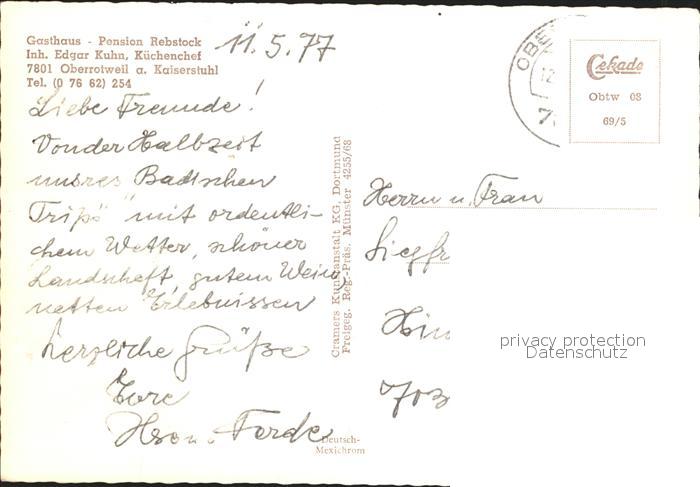 Gasthaus - Pension Rebstock
Inh. Edgar Kuhn, Küchenchef
7801 Oberrotweil a. Kaiserstuhl
Tel. (0 76 62) 254
11.5.77
Liebe Freunde!
Von der Halbzeit
unsres "Badischen
Trips" mit ordentli-
chem Wetter, schöner
Landschaft, gutem Wein,
netten Erlebnissen
herzliche Grüße
Eure
Cramers Kunstanstalt KG, Dortmund
Freigeg. Reg.-Präs. Münster 4255/68
Deutsch-
Mexichrom
Cekade
Obtw 08
69/5
Herrn u. Frau
Siegfr
Hin
703
privacy protection
Datenschutz